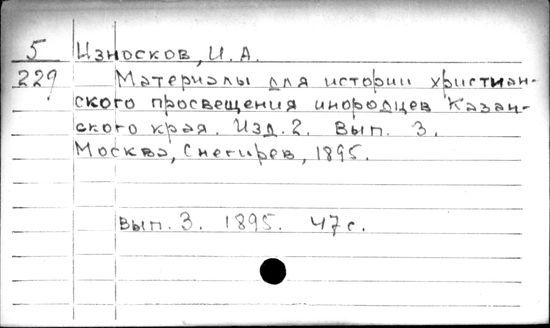 5 Износков, И. А.
229 Материалы для истории христиан-
ского просвещения инородцев Казан-
ского края. Изд. 2. Вып. 3.
Москва, Снегирев, 1895.
Вып. 3. 1895. 47 с.